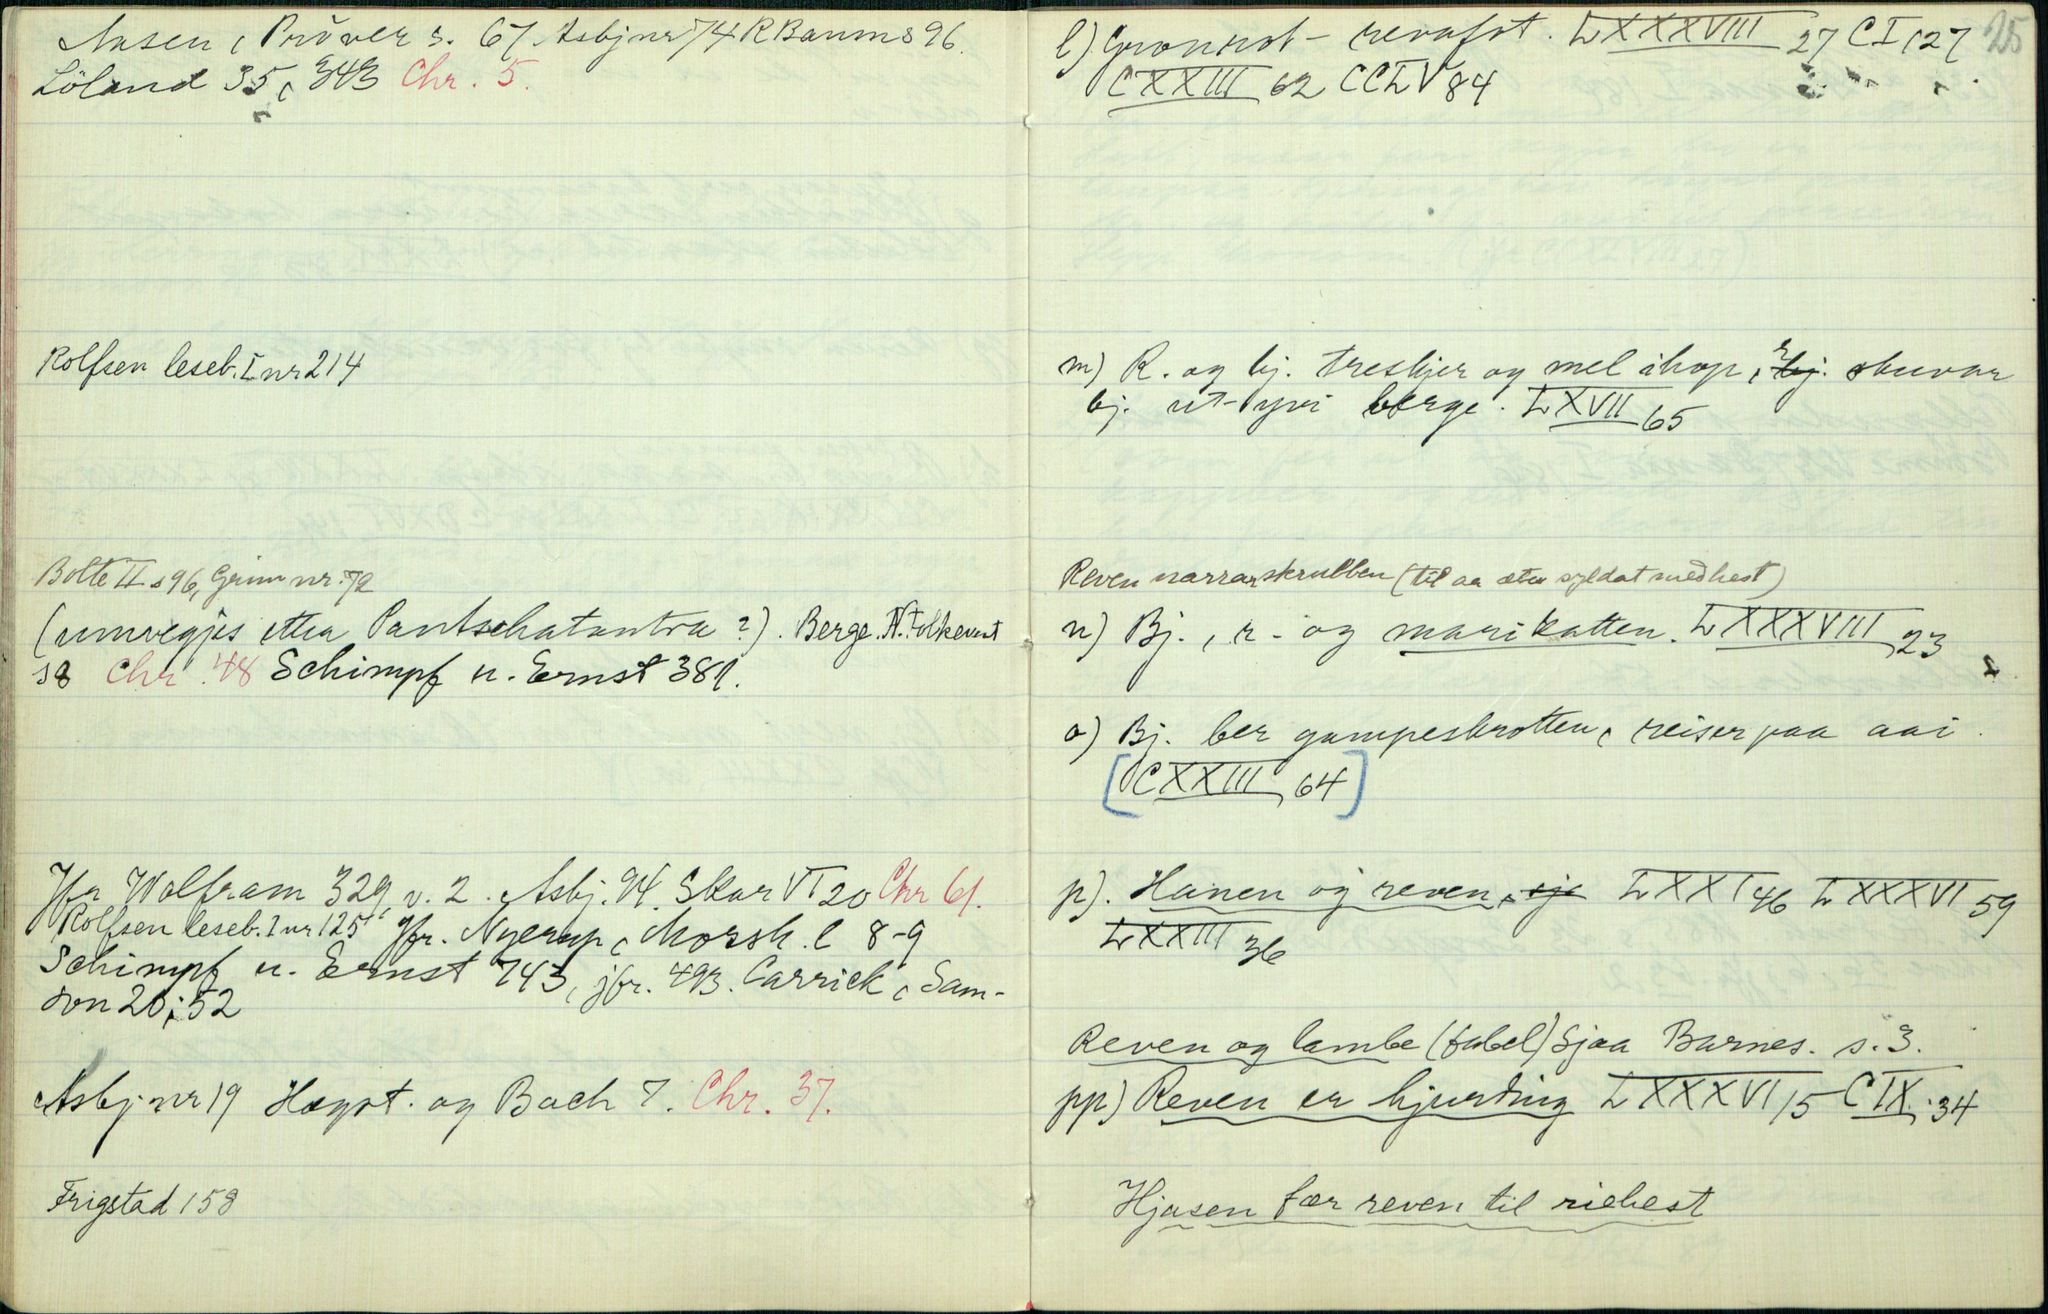 Aasen, Prøver s. 67 Asbj nr 74 R Baum s 96.
Löland 35, 343 Chr. 5.
Rolfsen leseb. I nr 214
Bolte II s 96, Grim nr. 72
(umvegjes etter Pantschatantra?). Berge. N. Folkeevent
s 8 Chr. 48 Schimpf u. Ernst 381.
Jfr Wolfram 329, v. 2. Asbj. 94. Skar VI 20 Chr 61.
Rolfsen leseb. I nr 125 jfr. Nyerup, Morsk. l 8-9
Schimpf u. Ernst 743, jfr. 493. Carrick, Sam-
son 20; 52
Asbj nr 19 Hægst. og Bach 7. Chr. 37.
Frigstad 158
25
l) Granrot - revafot. LXXXVIII 27 CI, 27
CXXIII 62 CCLV 84
m) R. og bj. treskjer og mel ihop, r bj. skuvar
bj. ut-yvi berge. LXVII 65
Reven narrar skrubben (til aa eta syldat med hest)
n) Bj., r - og marikatten. LXXXVIII 23
o) Bj. ber gampeskrotten, reiser paa aai.
[CXXIII 64]
p). Hanen og reven, sje LXXI 46 LXXXVI 59
LXXIII 36
Reven og lambe (fabel) Sjaa Barnes. s. 3.
pp) Reven er hjurding LXXXVI 15 CIX. 34
Hjasen fær reven til riehest